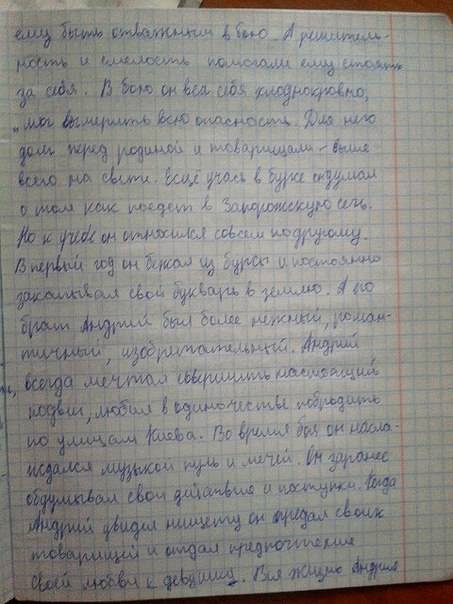 ему быть отважным в бою. А решитель-
ность и смелость помогали ему стоять
за себя. В бою он вел себя хлоднокровно,
мог вымерить всю опасность. Для него
долг перед родиной и товарищами - выше
всего на свете. Ещё учась в бурсе он думал
о том как поедет в Запорожскую сечь.
Но к учебе он относился совсем подругому.
В первый год он бежал из бурсы и постоянно
закапывал свой букварь в землю. А его
брат Андрий был более нежный, роман-
тичный, изобритательный. Андрий
всегда мечтал совершить настоящий
подвиг, любил в одиночестве побродить
по улицам Киева. Во время боя он насла-
ждался музыкой пуль и мечей. Он заранее
обдумывал свои действия и поступки. Когда
Андрий увидел нищету он предал своих
товарищей и отдал предпочтение
своей любви к девушке. Вся жизнь Андрия